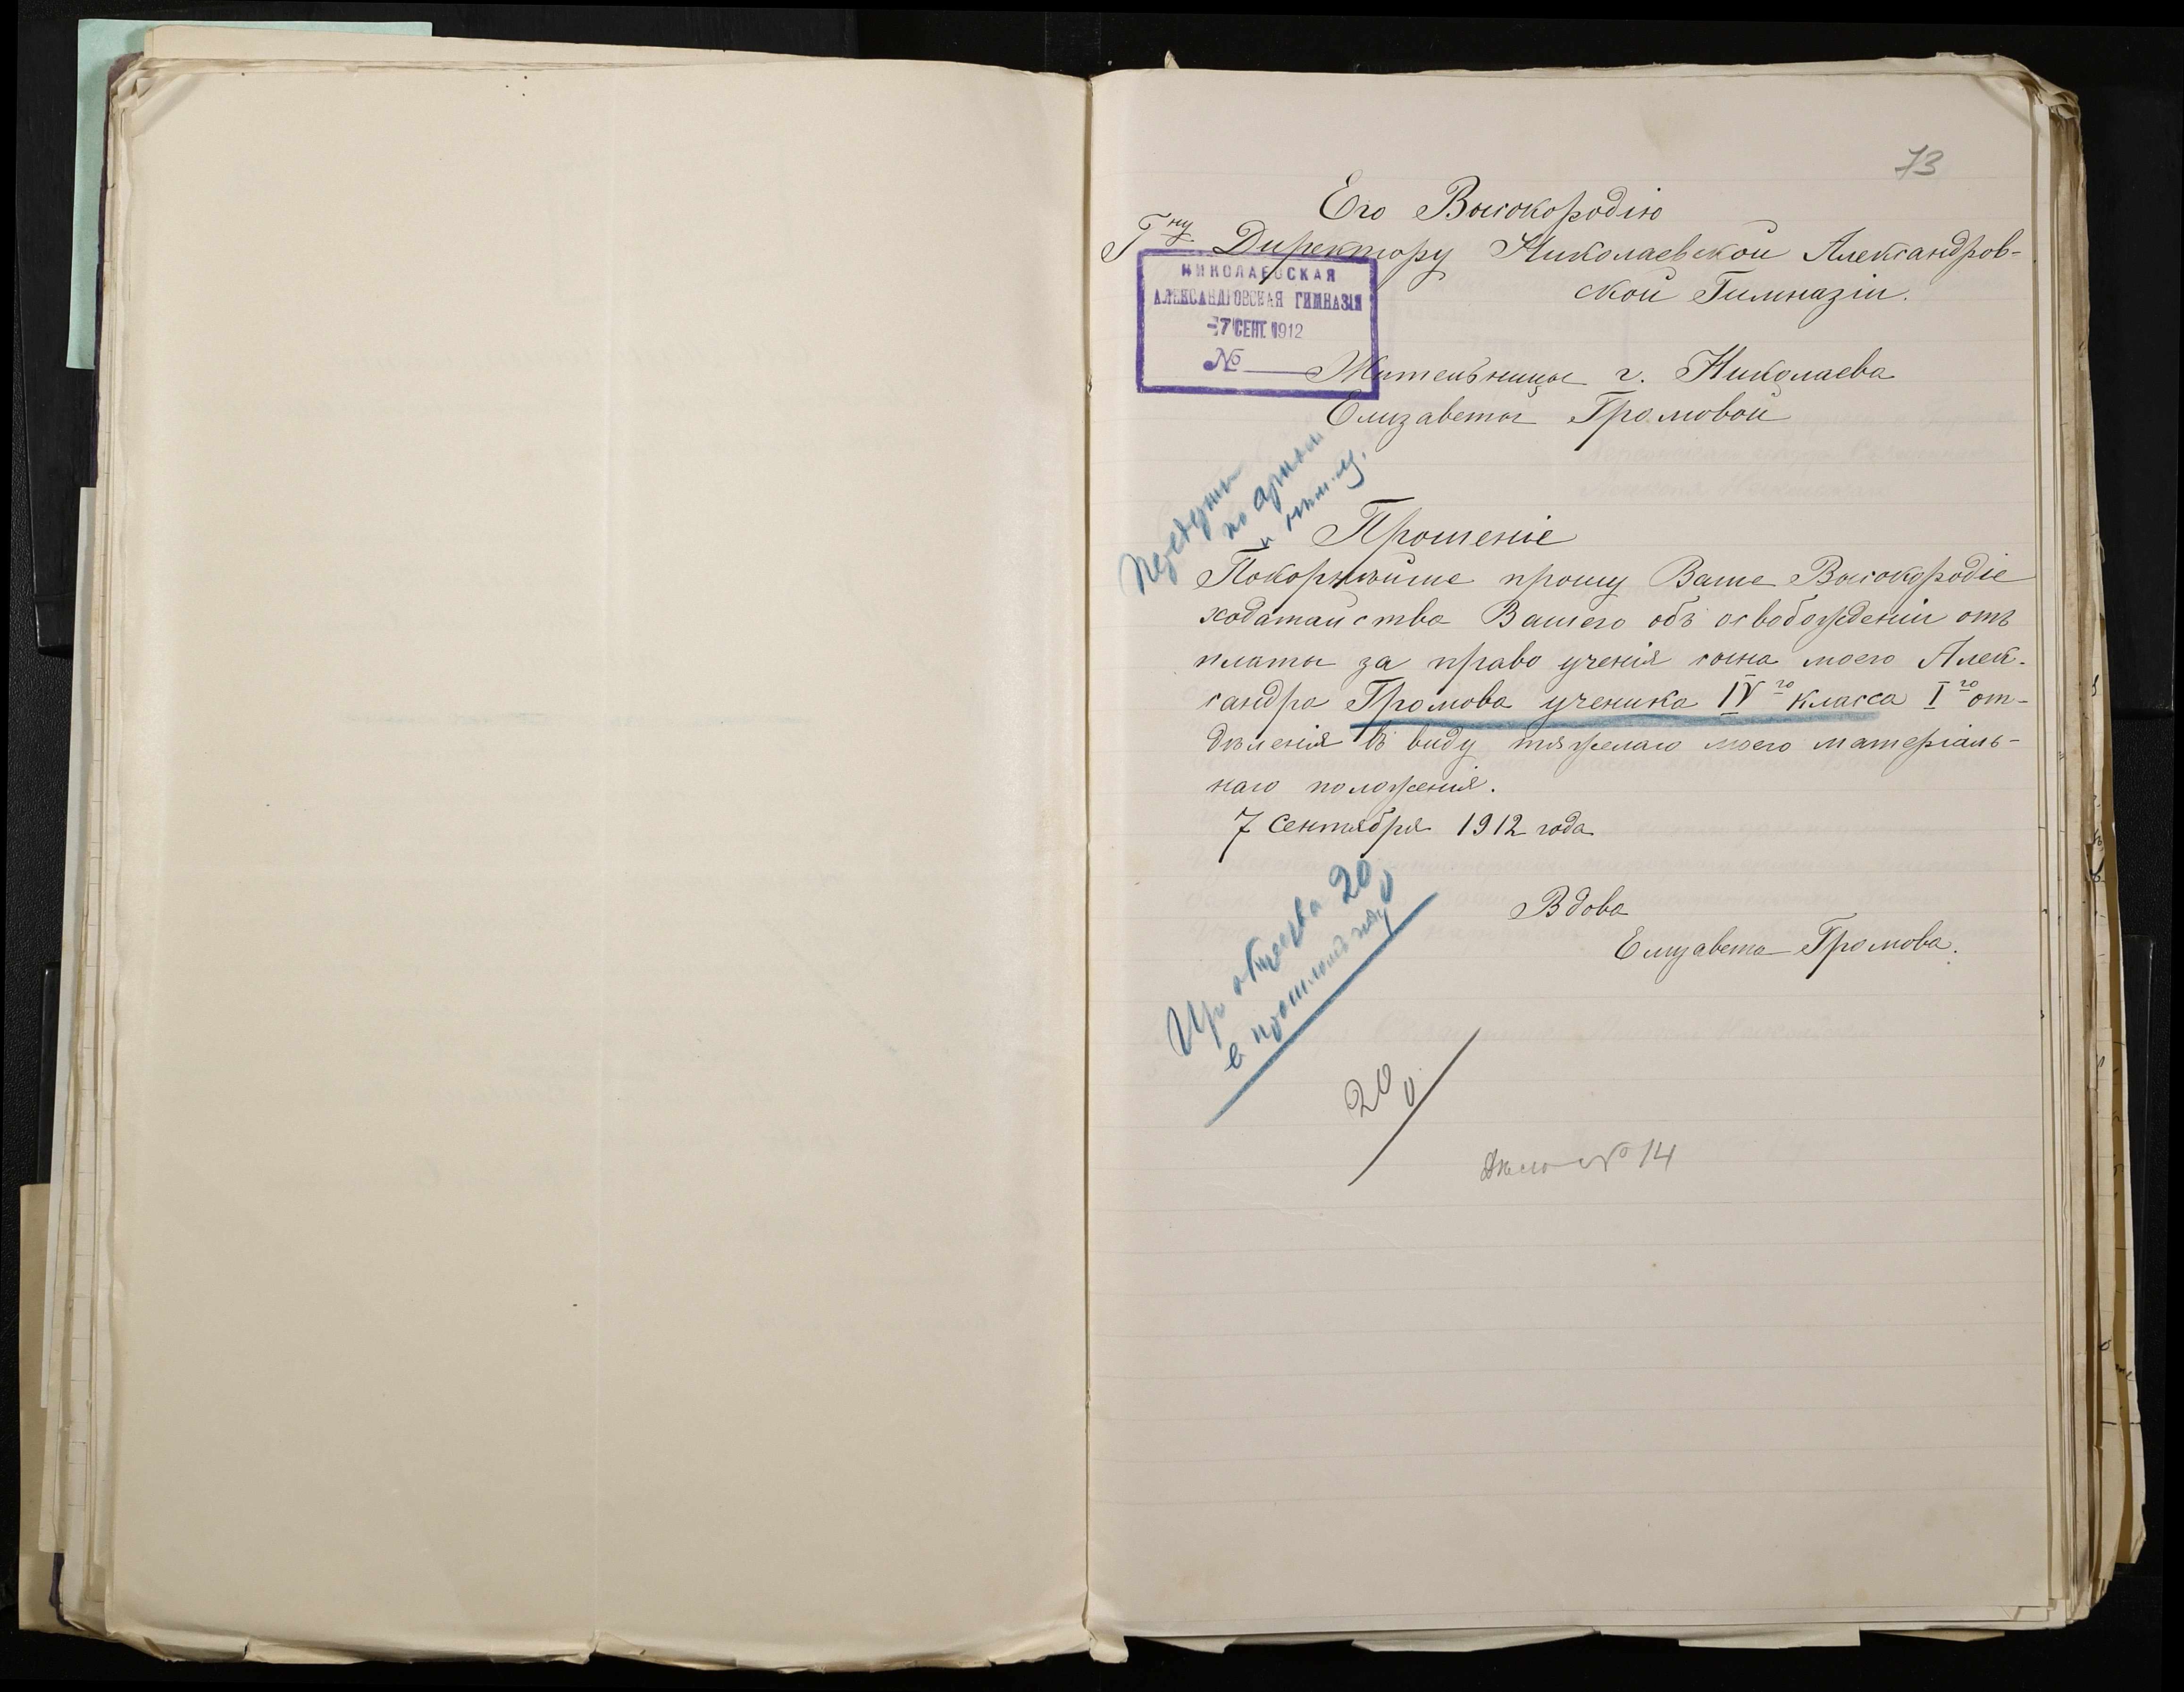 73
Его Высокородію
Гну Директору Николаевской Александров-
ской Гимназіи.
НИКОЛАЕВСКАЯ
АЛЕКСАНДРОВСКАЯ ГИМНАЗІЯ
-7 СЕНТ. 1912
№
Жительницы г. Николаева
Елизаветы Громовой
Прошеніе
Покорнѣйше прошу Ваше Высокородіе
ходатайства Вашего объ освобожденіи отъ
платы за право ученія сына моего Алек-
сандра Громова ученика IV го класса I го от-
дѣленія въ виду тяжелаго моего матеріаль-
наго положенія.
7 Сентября 1912 года
Вдова
Елизавета Громова.
Из общества 20
в прошломъ году
20
Дѣло № 14